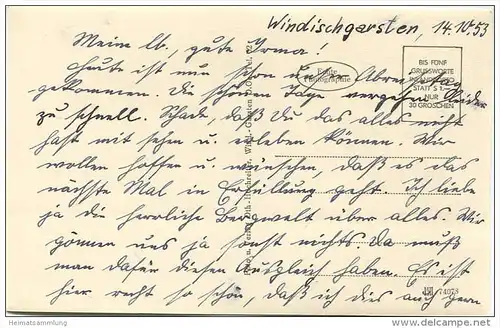 Windischgarsten, 14.10.53
Meine lb., gute Irma!
Heute ist nun schon uns. Abreisetag
gekommen. Die schönen Tage vergehen leider
zu schnell. Schade, daß Du das alles nicht
hast mit sehen u. erleben können. Wir
wollen hoffen u. wünschen, daß es das
nächste Mal in Erfüllung geht. Ich liebe
ja die herrliche Bergwelt über alles. Wir
gönnen uns ja sonst nichts. Da muß
man dafür diesen Ausgleich haben. Es ist
hier recht so schön, daß ich dies auch gern
BIS FÜNF
GRUSSWORTE
STATT S 1.-
NUR
30 GROSCHEN
Echte
Photographie
74078
Heimatsammlung